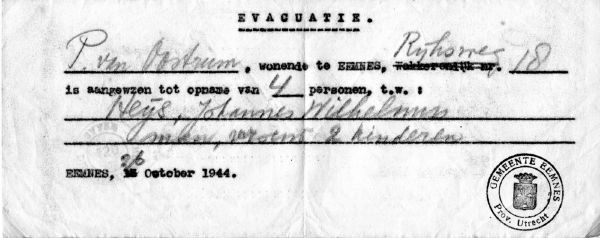 EVACUATIE.
P. van Oostrum, wonende te EEMNES, Rijksweg 18
is aangewezen tot opname van 4 personen, t.w.:
Heÿs, Johannes Wilhelmus
man, vrouw en 2 kinderen
EEMNES, 26 October 1944.
GEMEENTE EEMNES
Prov. Utrecht